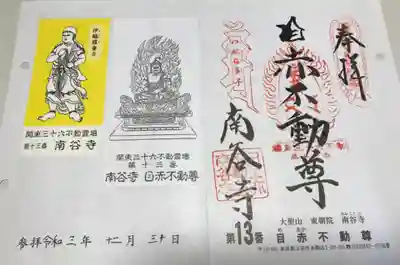 伊醯羅童子
関東三十六不動霊場
第十三番 南谷寺
関東三十六不動霊場
第十三番
南谷寺 目赤不動尊
参拝令和三年十二月三十日
奉拝
目赤不動尊
南谷寺
大聖山 東朝院 南谷寺
第13番 目赤不動尊